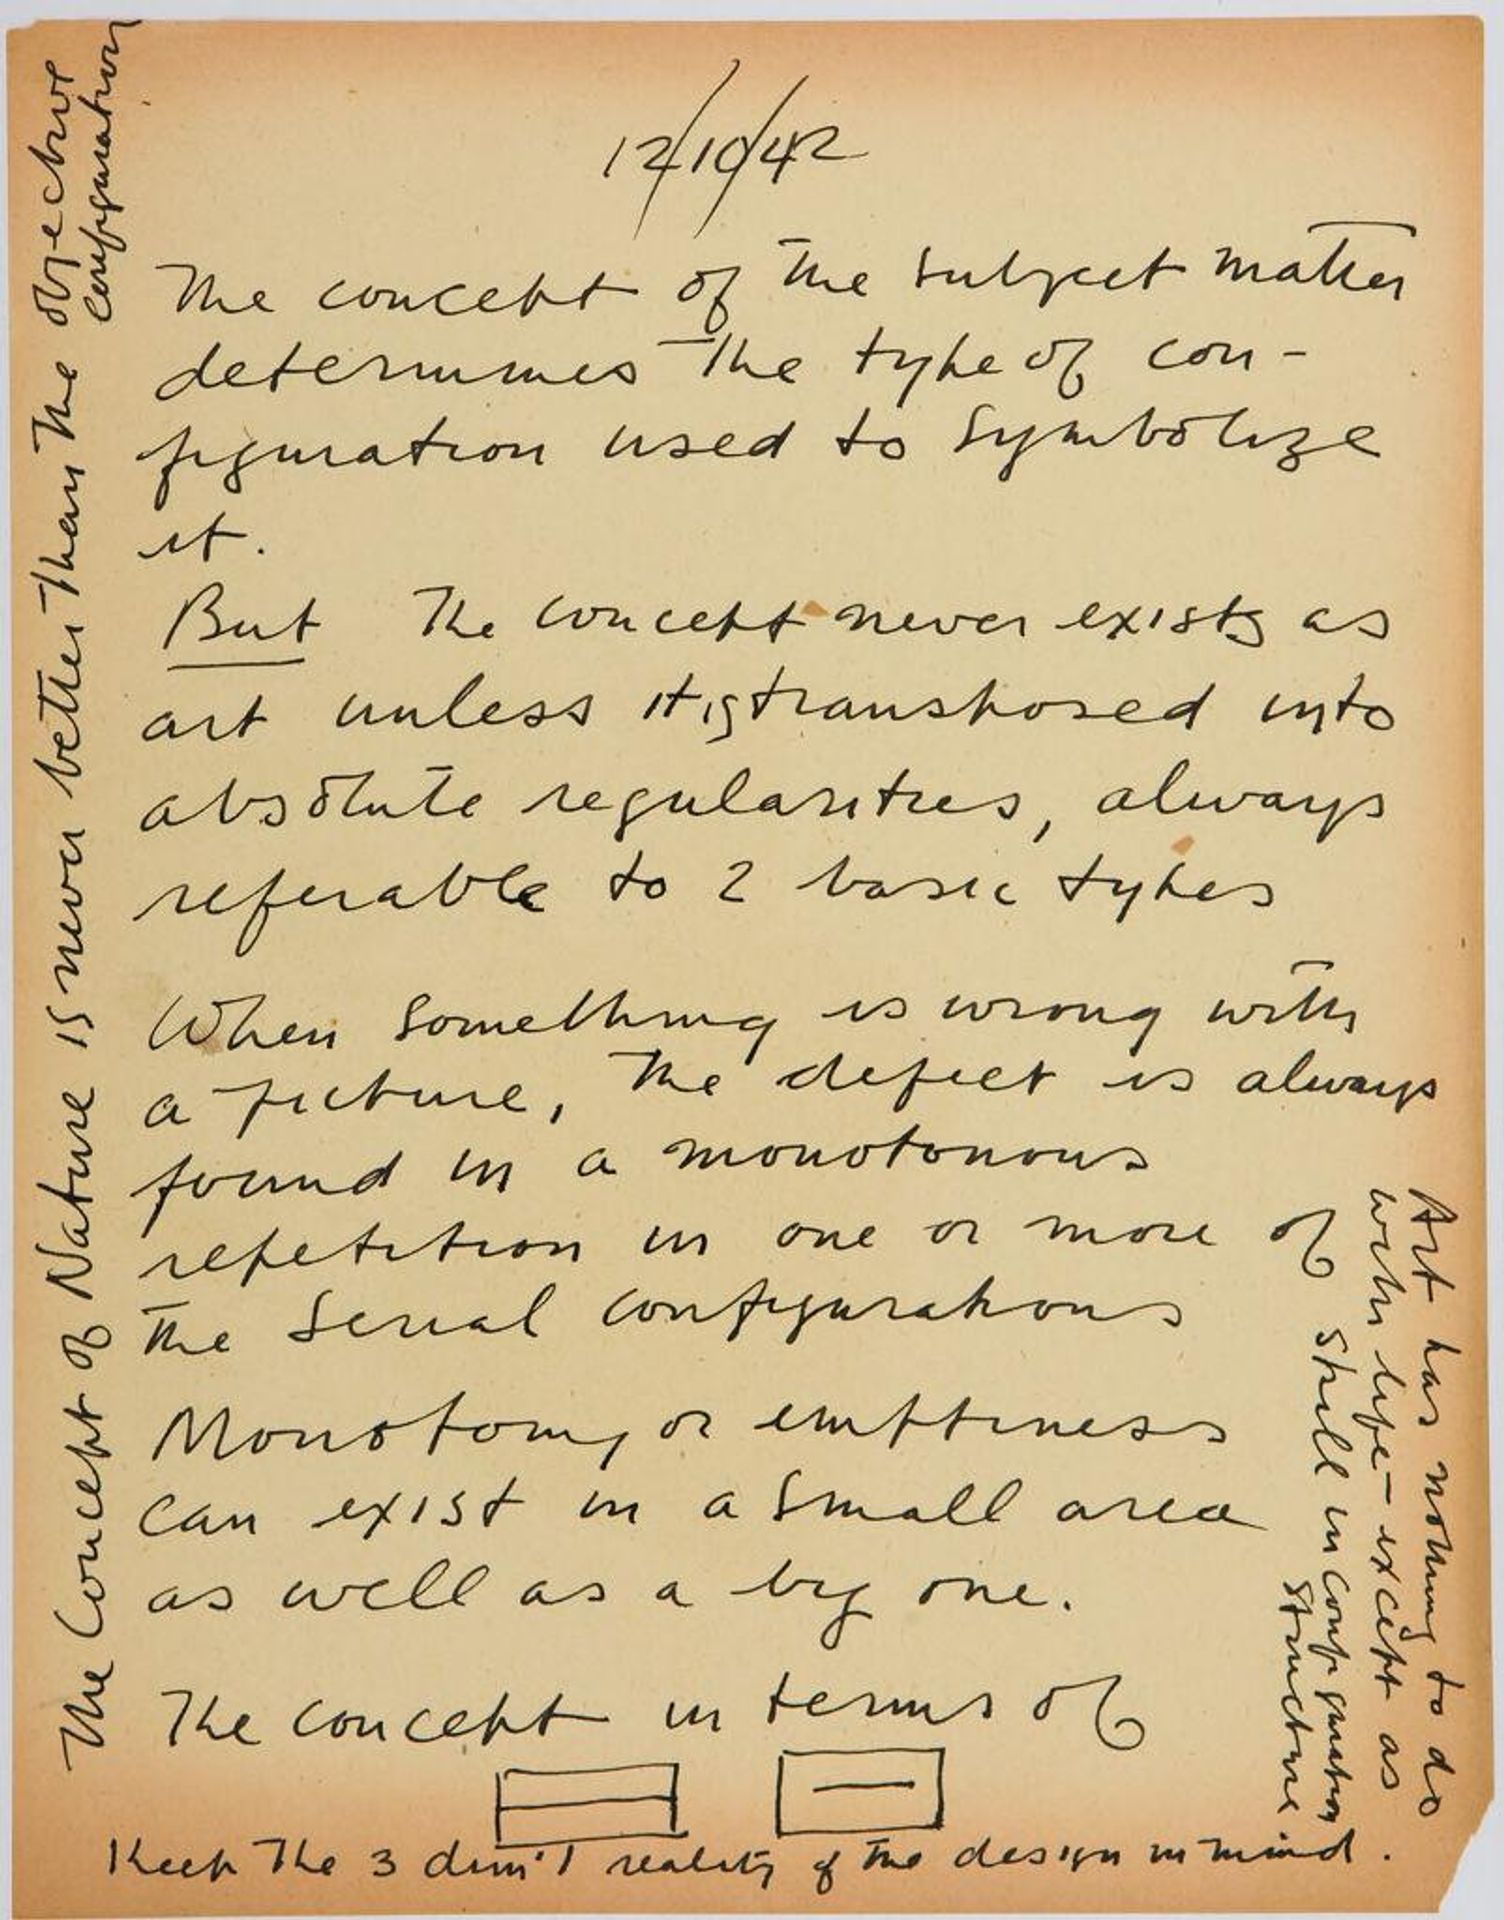 12/10/42
The concept of the subject matter
determines the type of con-
figuration used to symbolize
it.
But the concept never exists as
art unless it is transposed into
absolute regularities, always
referable to 2 basic types
When something is wrong with
a picture, the defect is always
found in a monotonous
repetition in one or more of
the serial configurations
Monotony or emptiness
can exist in a small area
as well as a big one.
The concept in terms of
Keep the 3 dim'l reality of the design in mind.
The Concept of Nature is never better than the objective
configuration
Art has nothing to do
with life - except as
skill in configuration
structure